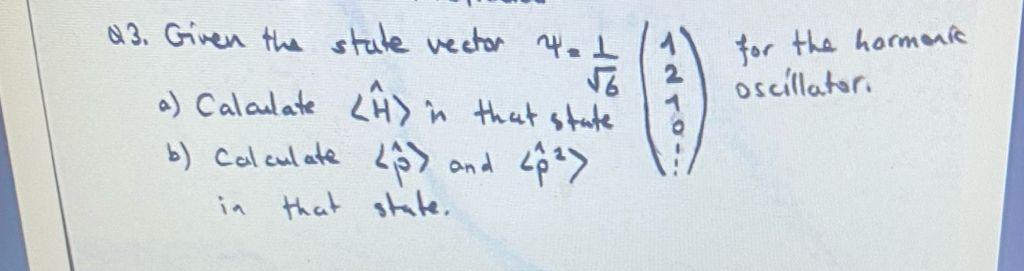 Q3. Given the state vector Ψ = 1/√6 (1 2 1 0 ⋮) for the harmonic oscillator.
a) Calculate ⟨Ĥ⟩ in that state
b) Calculate ⟨p̂⟩ and ⟨p̂²⟩
in that state.